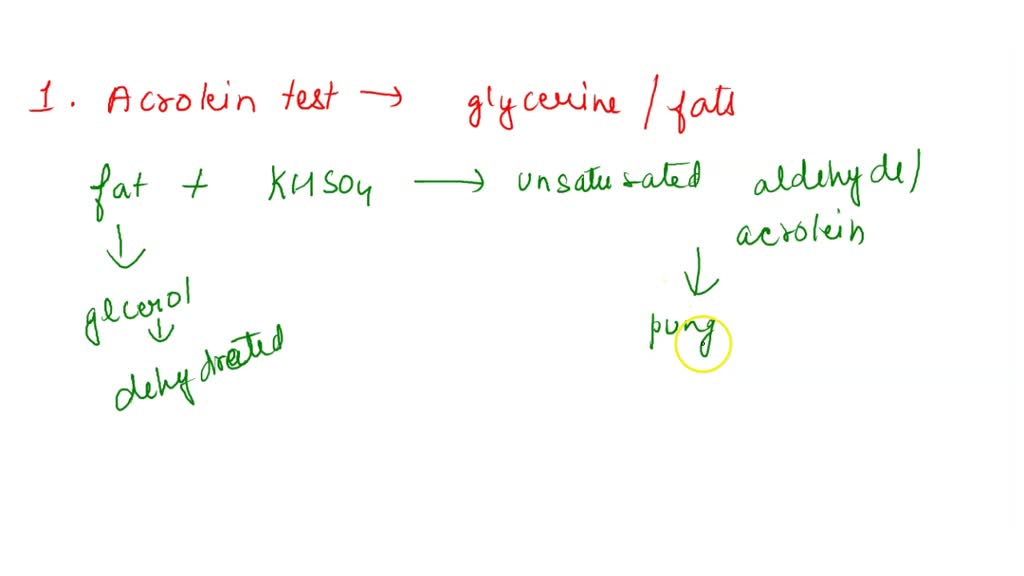 1. Acrolein test → glycerine / fats
fat + KHSO4 → unsaturated aldehyde /
acrolein
↓ ↓
glcerol
pung
↓
dehydrated